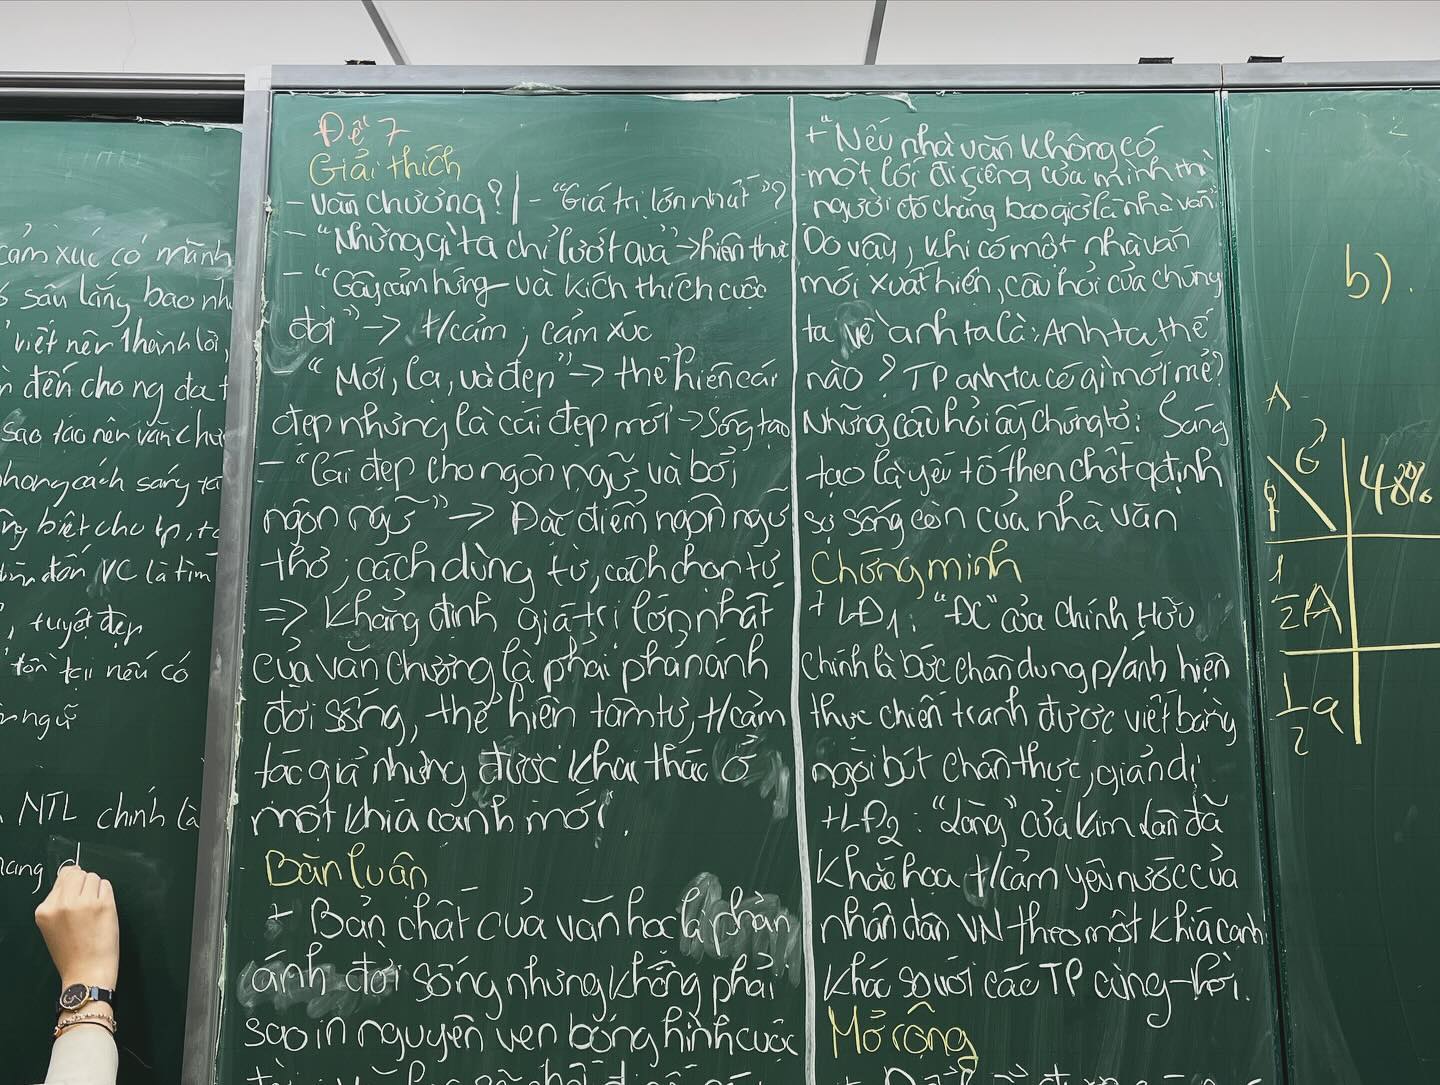 cảm xúc có mãnh
sâu lắng bao nh
viết nên thành lời,
đến cho ng đọc t
sao tạo nên văn chư
phong cách sáng tạ
biệt cho tp, tạ
VC là tìm
, tuyệt đẹp
tồn tại nếu có
ngữ
NTL chính là
mang đ
Đề 7
Giải thích
- Văn chương? | - "Giá trị lớn nhất"?
- "Những gì ta chỉ lướt qua" -> hiện thực
- "Gây cảm hứng và kích thích cuộc
đời" -> t/cảm, cảm xúc
"Mới, lạ, và đẹp" -> thể hiện cái
đẹp nhưng là cái đẹp mới -> Sáng tạo
- "Cái đẹp cho ngôn ngữ và bởi
ngôn ngữ" -> Đặc điểm ngôn ngữ
thơ, cách dùng từ, cách chọn từ
=> Khẳng định giá trị lớn nhất
của văn chương là phải phản ánh
đời sống, thể hiện tâm tư, t/cảm
tác giả nhưng được khai thác ở
một khía cạnh mới.
Bàn luận
+ Bản chất của văn học là phản
ánh đời sống nhưng không phải
sao in nguyên vẹn bóng hình cuộc
+ "Nếu nhà văn không có
một lối đi riêng của mình thì
người đó chẳng bao giờ là nhà văn"
Do vậy, khi có một nhà văn
mới xuất hiện, câu hỏi của chúng
ta về anh ta là: Anh ta thế
nào? TP anh ta có gì mới mẻ?
Những câu hỏi ấy chứng tỏ: Sáng
tạo là yếu tố then chốt qđịnh
sự sống còn của nhà văn
Chứng minh
+ LĐ1: "ĐC" của Chính Hữu
chính là bức chân dung p/ánh hiện
thực chiến tranh được viết bằng
ngòi bút chân thực, giản dị.
+ LĐ2: "Làng" của Kim Lân đã
khắc họa t/cảm yêu nước của
nhân dân VN theo một khía cạnh
khác so với các TP cùng thời.
Mở rộng
b).
48%
1/2 A
1/2 a